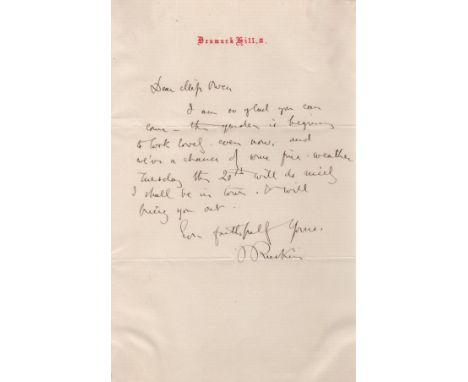 Denmark Hill, S.
Dear Miss Owen
I am so glad you can
come – the garden is begining
to look lovely even now, and
we've a chance of some fine weather
Tuesday the 20th will do nicely
I shall be in town. & will
bring you out.
Ever faithfully Yours.
J Ruskin